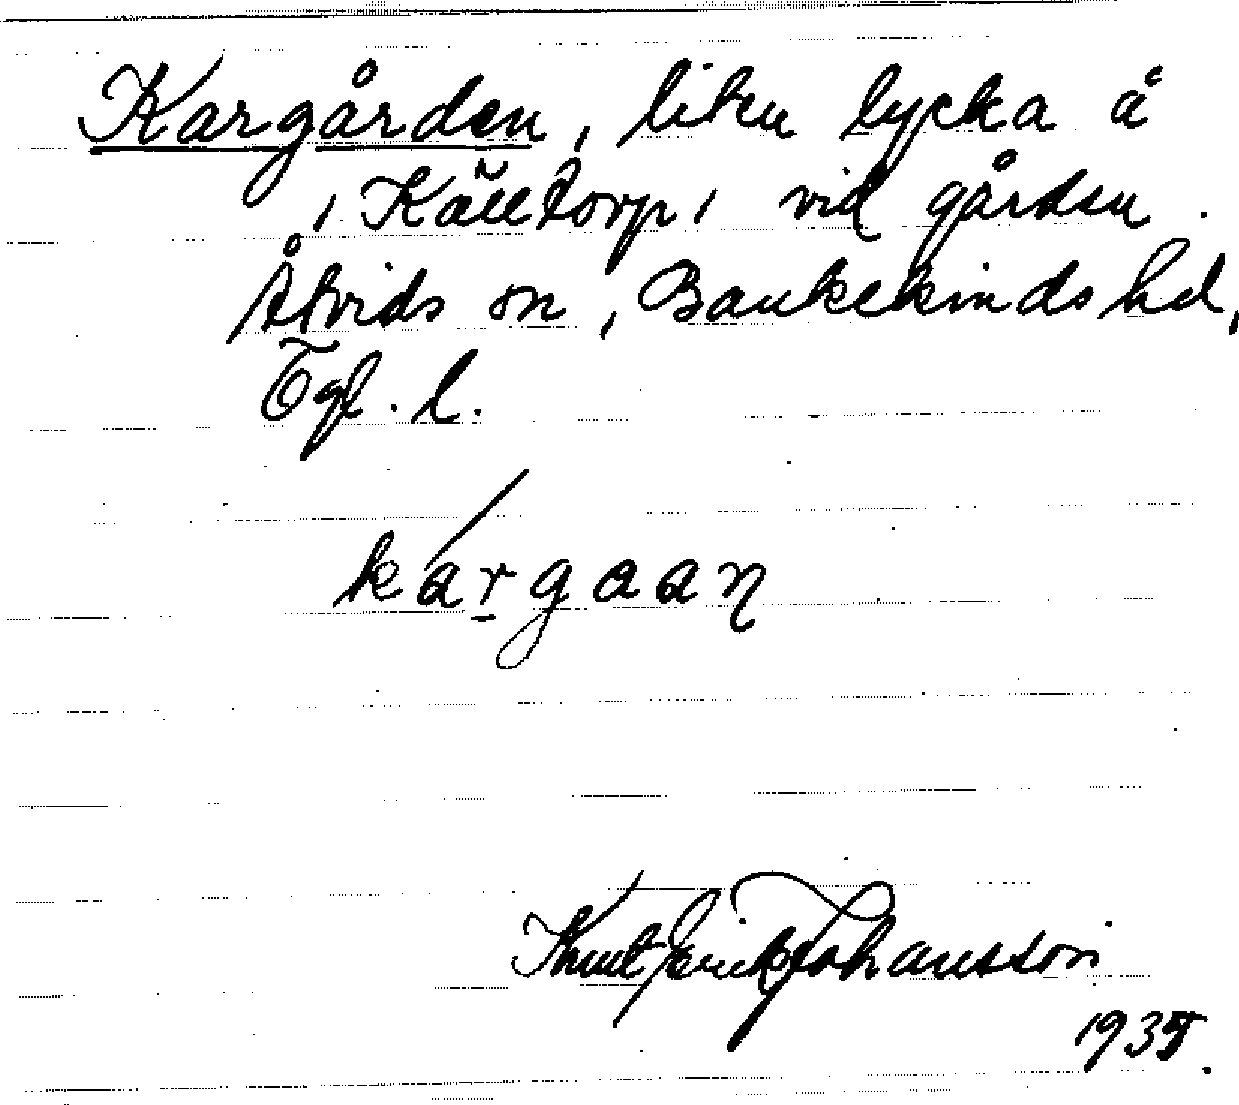 Kargården, liten lycka å
, Källtorp, vid gården.
Åtvids sn, Bankekinds hd,
Ögl. l.
kárgaan
Knut Erik Johansson
1935.